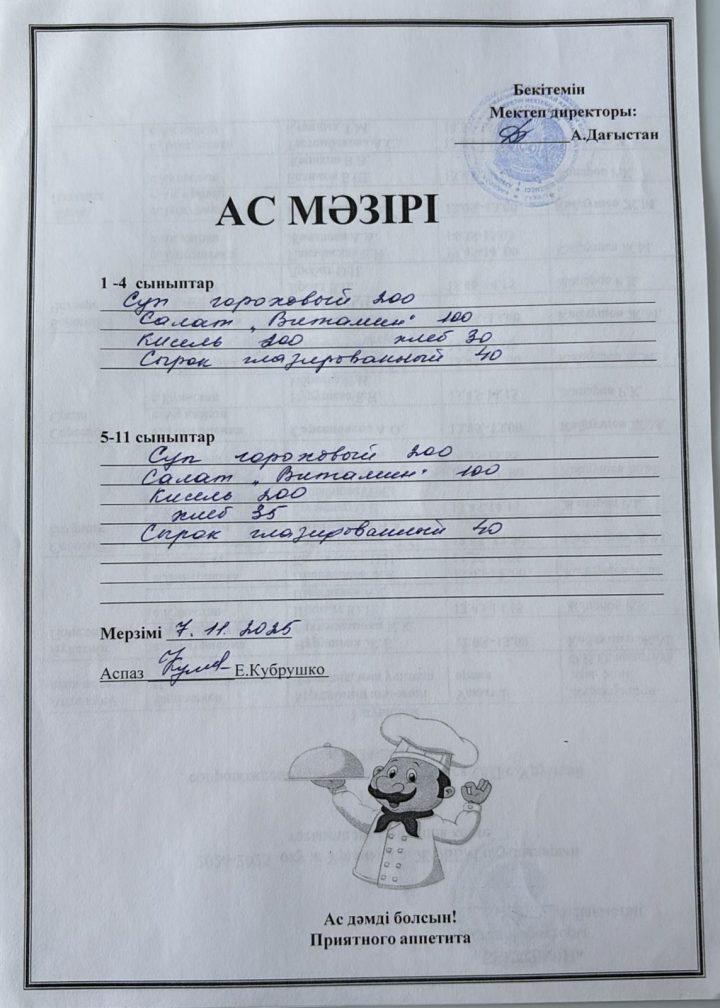 Бекітемін
Мектеп директоры:
А.Дағыстан
АС МӘЗІРІ
1 -4 сыныптар
Суп гороховый 200
Салат „Витамин“ 100
Кисель 200 хлеб 30
Сырок глазированный 40
5-11 сыныптар
Суп гороховый 200
Салат „Витамин“ 100
Кисель 200
хлеб 35
Сырок глазированный 40
Мерзімі 7.11.2025
Аспаз Е.Кубрушко
Ас дәмді болсын!
Приятного аппетита